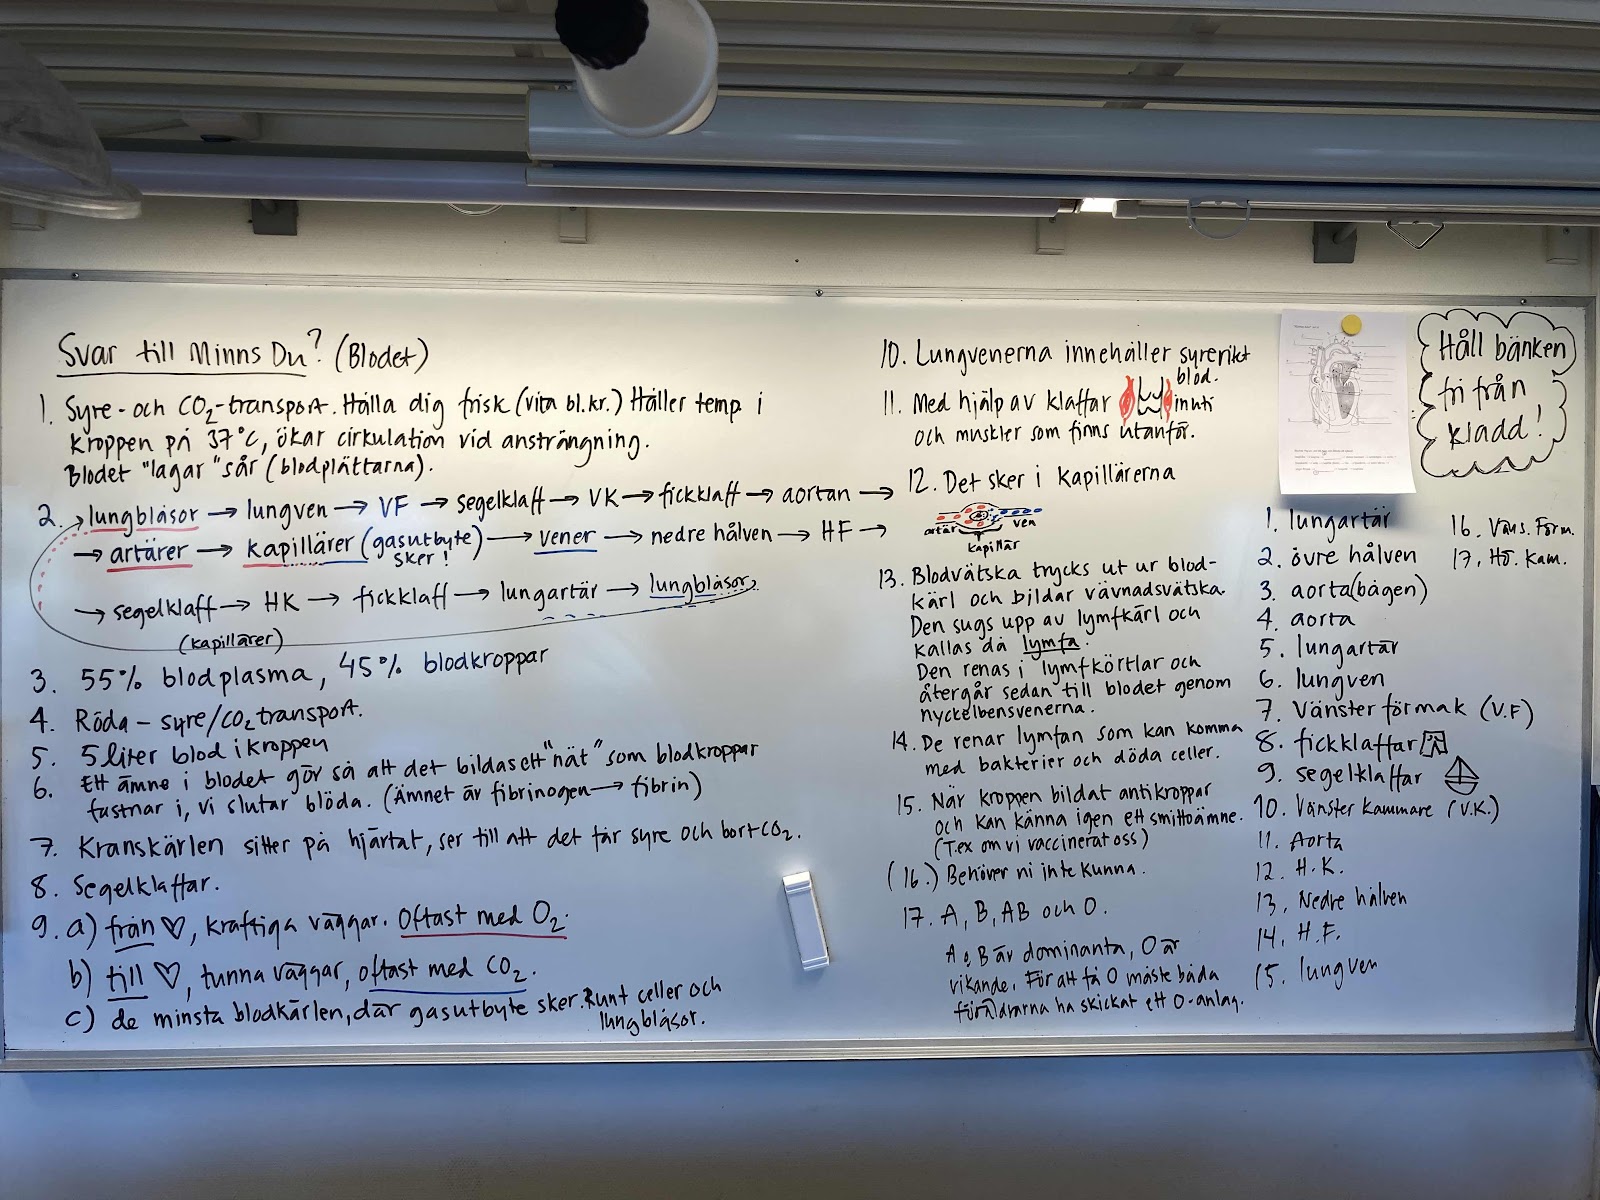 Svar till Minns Du? (Blodet)
1. Syre- och CO₂-transport. Hålla dig frisk (vita bl.kr.) Håller temp i
kroppen på 37°C, ökar cirkulation vid ansträngning.
Blodet "lagar" sår (blodplättarna).
2. → lungblåsor → lungven → VF → segelklaff → VK → fickklaff → aortan →
→ artärer → kapillärer (gasutbyte) → vener → nedre hålven → HF →
sker!
→ segelklaff → HK → fickklaff → lungartär → lungblåsor
(kapillärer)
3. 55% blodplasma, 45% blodkroppar
4. Röda - syre/CO₂ transport.
5. 5 liter blod i kroppen
6. Ett ämne i blodet gör så att det bildas ett "nät" som blodkroppar
fastnar i, vi slutar blöda. (Ämnet är fibrinogen → fibrin)
7. Kranskärlen sitter på hjärtat, ser till att det får syre och bort CO₂.
8. Segelklaffar.
9. a) från ♡, kraftiga väggar. Oftast med O₂.
b) till ♡, tunna väggar, oftast med CO₂.
c) de minsta blodkärlen, där gasutbyte sker. Runt celler och
lungblåsor.
10. Lungvenerna innehåller syrerikt
blod.
11. Med hjälp av klaffar inuti
och muskler som finns utanför.
12. Det sker i kapillärerna
artär ven
kapillär
13. Blodvätska trycks ut ur blod-
kärl och bildar vävnadsvätska.
Den sugs upp av lymfkärl och
kallas då lymfa.
Den renas i lymfkörtlar och
återgår sedan till blodet genom
nyckelbensvenerna.
14. De renar lymfan som kan komma
med bakterier och döda celler.
15. När kroppen bildat antikroppar
och kan känna igen ett smittoämne.
(T.ex om vi vaccinerat oss)
(16.) Behöver ni inte kunna.
17. A, B, AB och O.
A o B är dominanta, O är
vikande. För att få O måste båda
föräldrarna ha skickat ett O-anlag.
Håll bänken
fri från
kladd!
1. lungartär
2. övre hålven
3. aorta(bågen)
4. aorta
5. lungartär
6. lungven
7. Vänster förmak (V.F)
8. fickklaffar
9. segelklaffar
10. Vänster kammare (V.K.)
11. Aorta
12. H.K.
13. Nedre hålven
14. H.F.
15. lungven
16. Väns. Förm.
17. Hö. Kam.